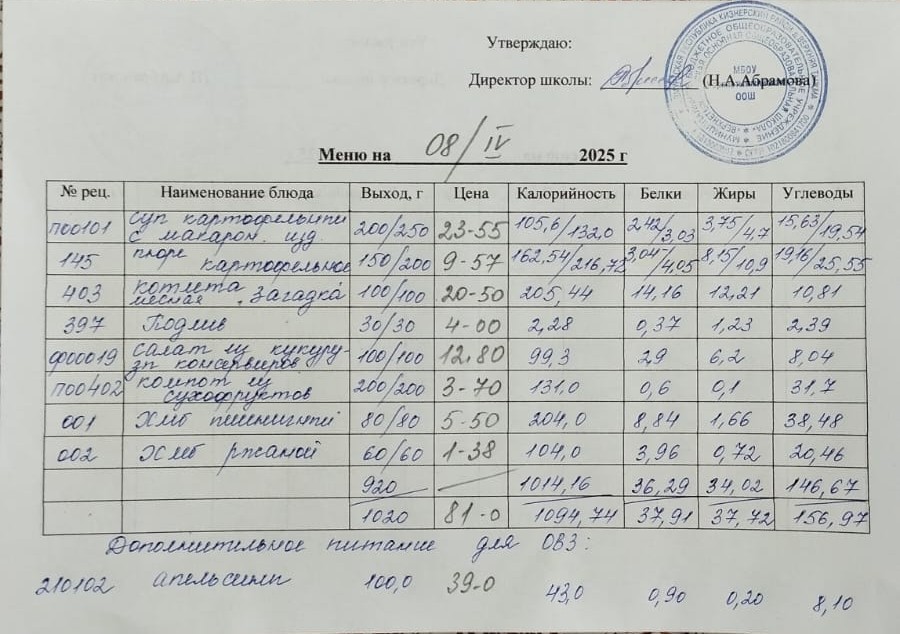 Утверждаю:
Директор школы: (Н.А.Абрамова)
МБОУ
ООШ
Меню на 08/IV 2025 г
№ рец. Наименование блюда Выход, г Цена Калорийность Белки Жиры Углеводы
П00101 суп картофельный с макарон. изд 200/250 23-55 105,6/132,0 2,42/3,03 3,75/4,7 15,63/19,54
145 пюре картофельное 150/200 9-57 162,54/216,78 3,04/4,05 8,15/10,9 19,16/25,55
403 котлета мясная "Загадка" 100/100 20-50 205,44 14,16 12,21 10,81
397 Подлив 30/30 4-00 2,28 0,37 1,23 2,39
ф00019 салат из кукуру-зы консервиров. 100/100 12,80 99,3 2,9 6,2 8,04
П00402 компот из сухофруктов 200/200 3-70 131,0 0,6 0,1 31,7
001 Хлеб пшеничный 80/80 5-50 204,0 8,84 1,66 38,48
002 Хлеб ржаной 60/60 1-38 104,0 3,96 0,72 20,46
920 1014,16 36,29 34,02 146,67
1020 81-0 1094,74 37,91 37,72 156,97
Дополнительное питание для ОВЗ:
210102 апельсины 100,0 39-0 43,0 0,90 0,20 8,10